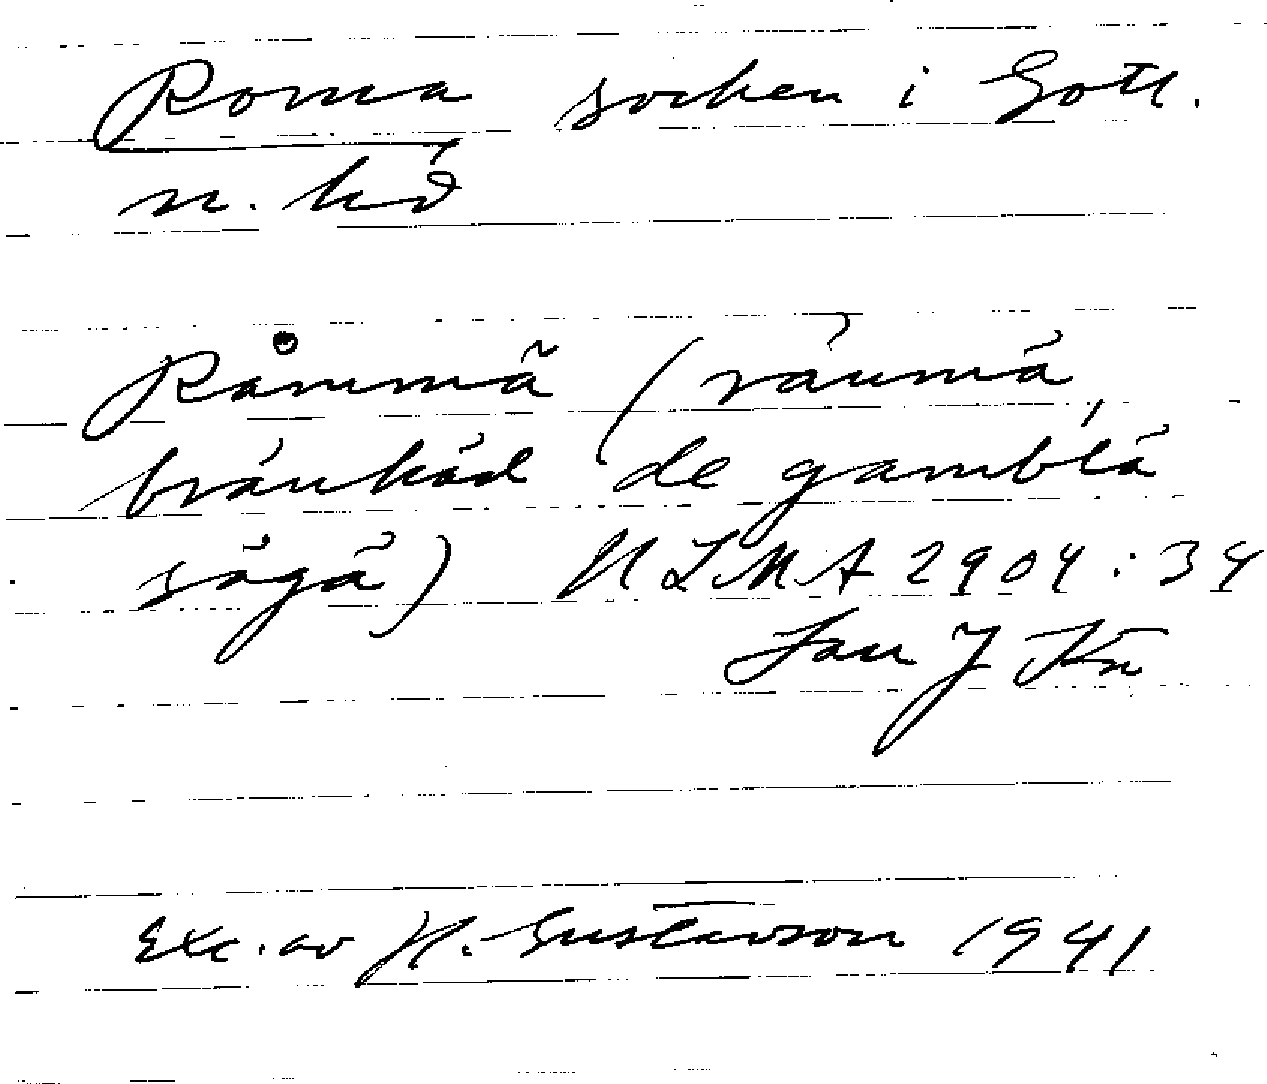 Roma socken i Gotl.
n. hd
Råmmã (råumã,
bråukãd de gamblã
sãgã) ULMA 2904:34
Lau J Kn
Exc. av H. Gustavson 1941